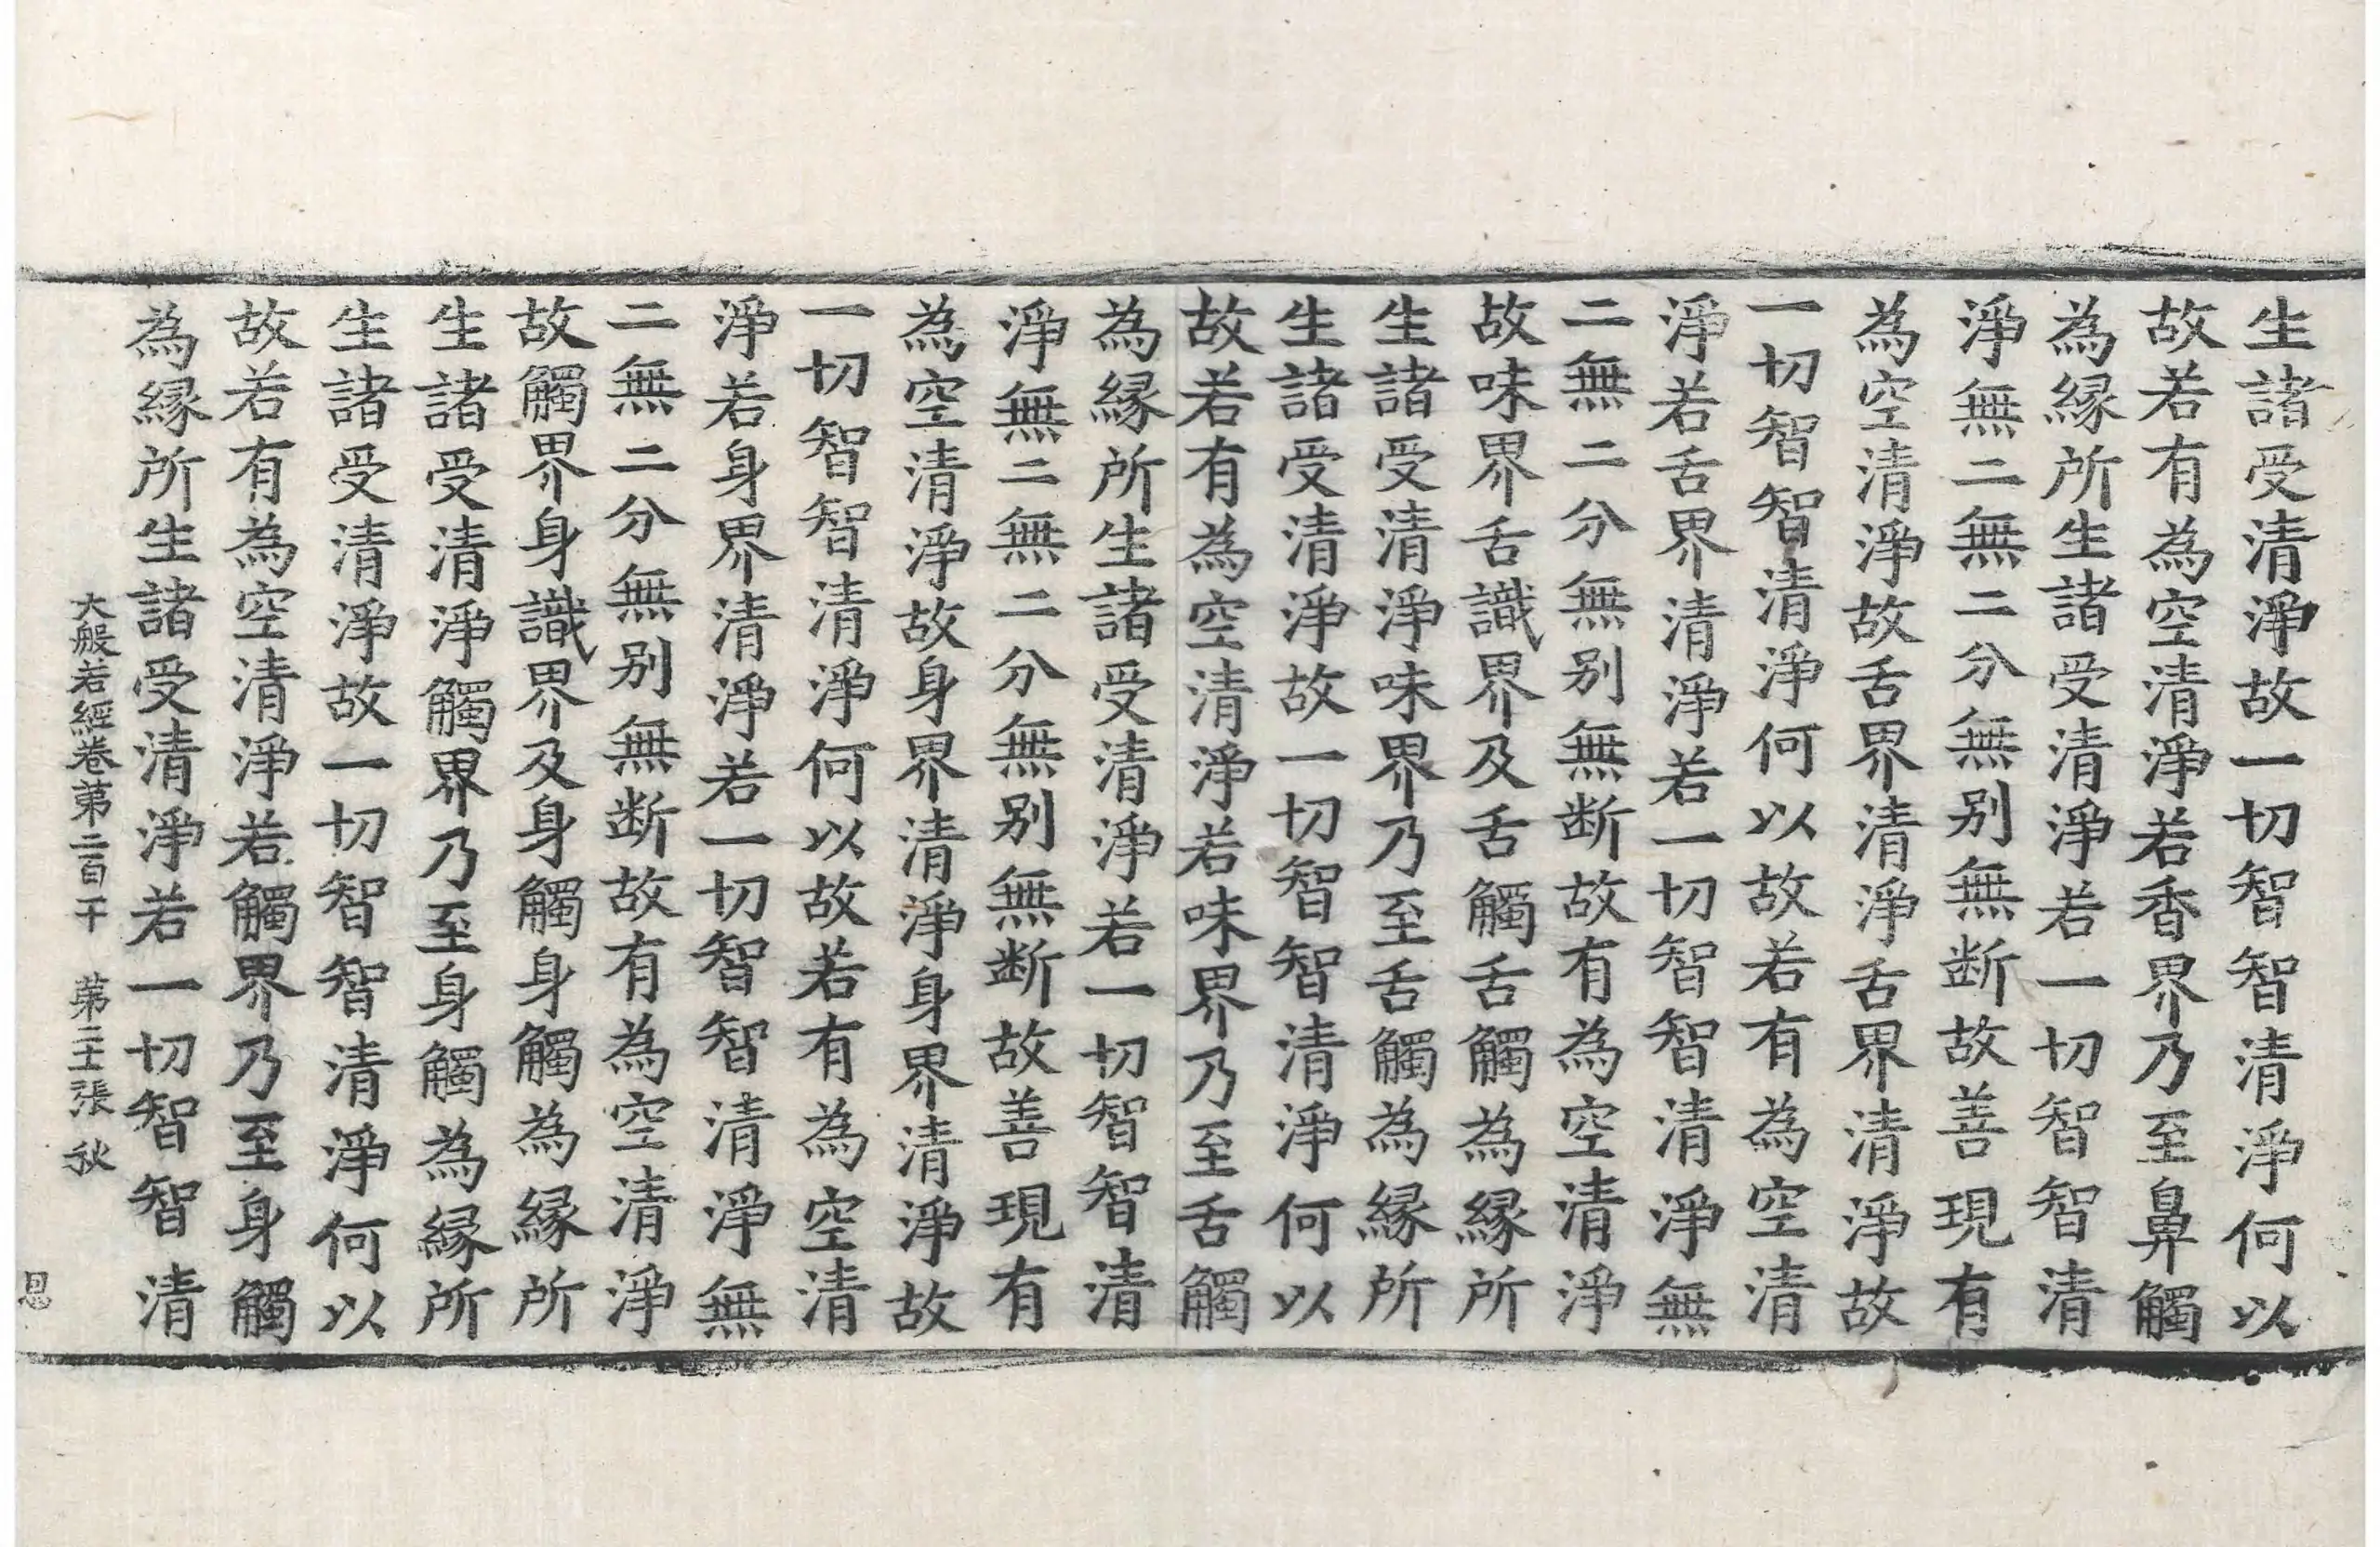 生諸受清淨故一切智智清淨何以
故若有為空清淨若香界乃至鼻觸
為縁所生諸受清淨若一切智智清
淨無二無二分無別無断故善現有
為空清淨故舌界清淨舌界清淨故
一切智智清淨何以故若有為空清
淨若舌界清淨若一切智智清淨無
二無二分無別無断故有為空清淨
故味界舌識界及舌觸舌觸為縁所
生諸受清淨味界乃至舌觸為縁所
生諸受清淨故一切智智清淨何以
故若有為空清淨若味界乃至舌觸
為縁所生諸受清淨若一切智智清
淨無二無二分無別無断故善現有
為空清淨故身界清淨身界清淨故
一切智智清淨何以故若有為空清
淨若身界清淨若一切智智清淨無
二無二分無別無断故有為空清淨
故觸界身識界及身觸身觸為縁所
生諸受清淨觸界乃至身觸為縁所
生諸受清淨故一切智智清淨何以
故若有為空清淨若觸界乃至身觸
為縁所生諸受清淨若一切智智清
大般若經卷第二百千 第二十張